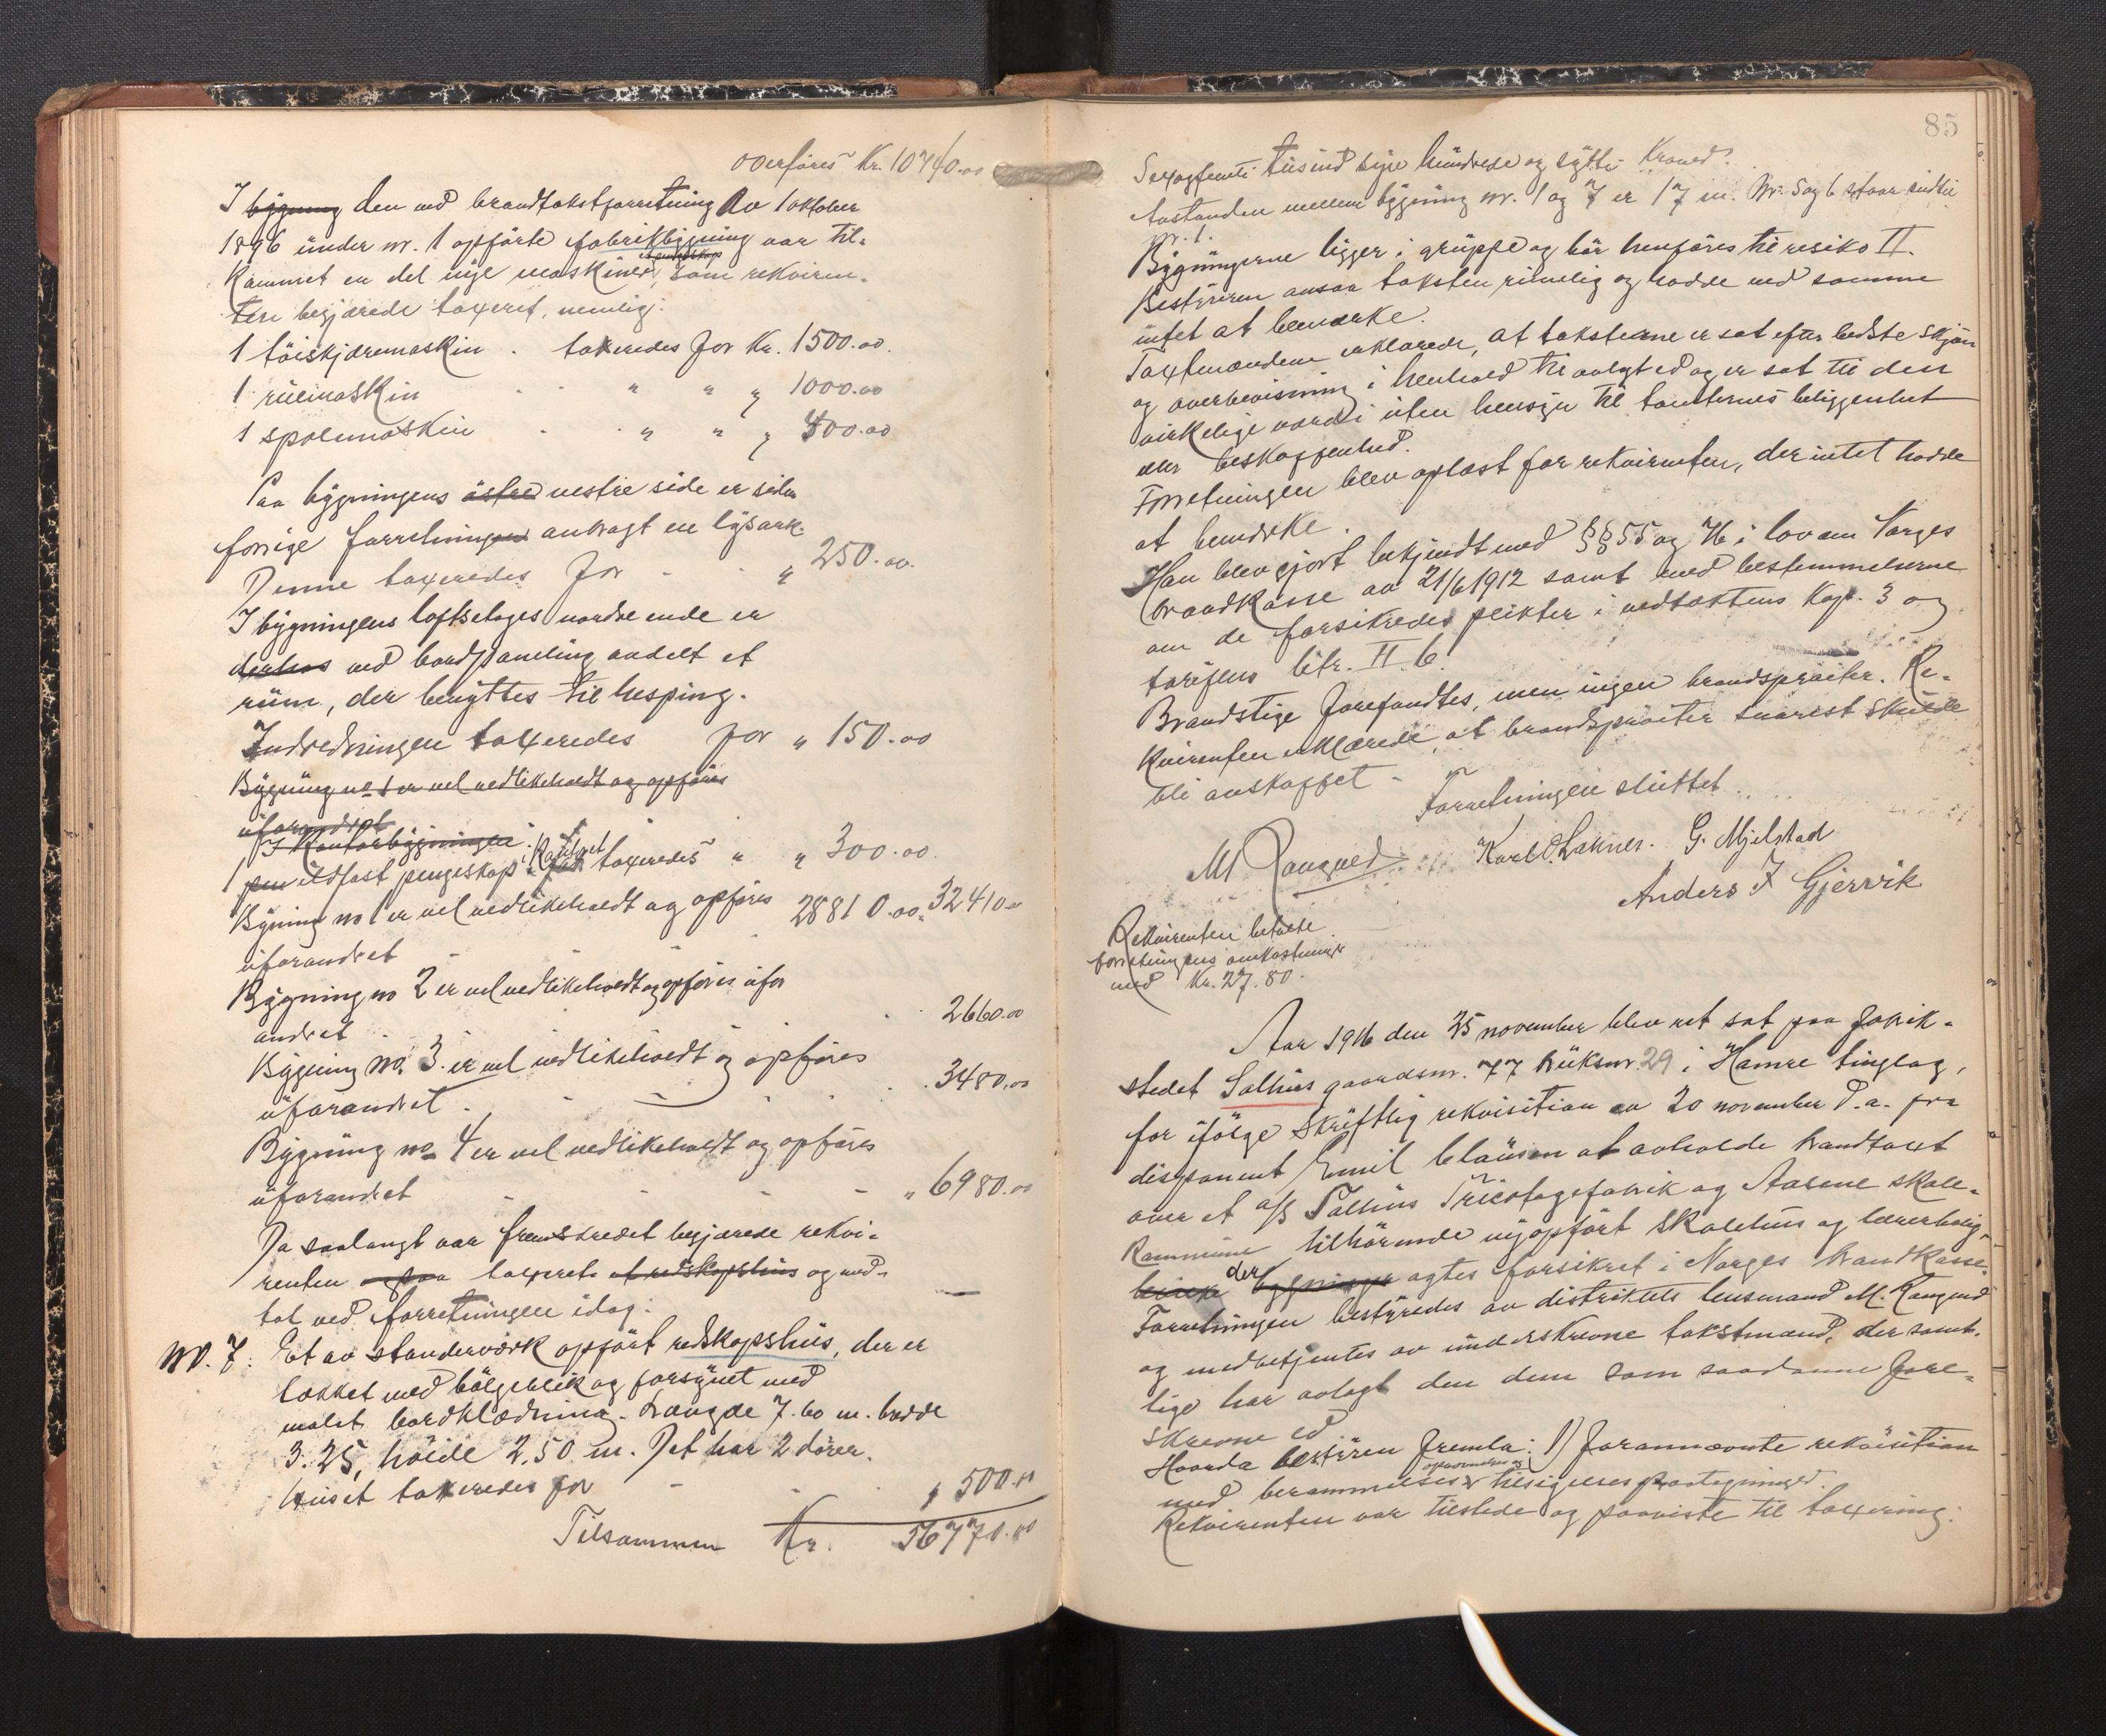 overføres Kr. 10740.00
I bygning den ved brandtakstforretning av 1 oktober
1896 under nr. 1 opførte fabrikbygning var til-
kommet en del nye maskiner, som rekviren-
ten begjærede taxeret, nemlig:
1 tøiskjæremaskin . taxeredes for Kr. 1500.00.
1 ruemaskin . . " " " 1000.00
1 spolemaskin . . " " " 400.00
Paa bygningens østre vestre side er siden
forrige forretningen anbragt en lysark.
Denne taxeredes for - - " 250.00.
I bygningens loftsetages nordre ende er
derhos ved bordpaneling avdelt et
rum, der benyttes til hesping.
Indredningen taxeredes for " 150.00
Bygning no 1 er vel vedlikeholdt og opføres
uforandret
I Kontorbygningen
1 ildfast pengeskap i Kontoret taxeredes " " 300.00.
Bygning no 1 er vel vedlikeholdt og opføres 28810.00. 32410.00
uforandret -
Bygning no 2 er vel vedlikeholdt og opføres ufor
andret . . . 2660.00
Bygning no. 3. er vel vedlikeholdt og opføres
uforandret . - - . . 3480.00
Bygning no 4 er vel vedlikeholdt og opføres
uforandret - - - - " 6980.00
Da saalangt var fremskredet begjærede rekvi-
renten ogsaa taxeret et redskapshus og med-
tat ved forretningen idag:
No. 7: Et av standerværk opført redskapshus, der er
tækket med bølgeblik og forsynet med
malet bordklædning. Længde 7.60 m. bredde
3.25, høide 2,50 m. Det har 2 dører.
Huset taxeredes for - - . " 500.00
Tilsammen Kr. 56770.00
85
Sexogfemti tusind syv hundrede og sytti Kroner.
Avstanden mellem bygning nr. 1 og 7 er 17 m. Nr. 5 og 6 staar indtil
nr. 1.
Bygningerne ligger i gruppe og bør henføres til risiko II.
Bestyreren ansaa taksten rimelig og hadde ved samme
intet at bemærke.
Taxtmændene erklærede, at taksterne er sat efter bedste skjøn
og overbevisning i henhold til avlagt ed og er sat til den
virkelige værdi uten hensyn til tomternes beliggenhet
eller beskaffenhed.
Forretningen blev oplæst for rekvirenten, der intet hadde
at bemærke.
Han blev gjort bekjendt med §§ 55 og 76 i lov om Norges
brandkasse av 21/6 1912 samt med bestemmelserne
om de forsikredes pligter i vedtæktens Kap. 3 og
tarifens litr. H. 6.
Brandstige forefandtes, men ingen brandsprøiter. Re-
kvirenten erklærede, at brandsprøiter snarest skulde
bli anskaffet - Forretningen sluttet.
M Rangved Karl O. Lakner. G. Mjelstad
Anders I Gjervik
Rekvirenten betalte
forretningens omkostninger
med Kr. 27.80.
Aar 1916 den 25 november blev ret sat paa fabrik-
stedet Salhus gaardsnr. 77 bruksnr. 29 i Hamre tinglag,
for ifølge skriftlig rekvisition av 20 november d.a. fra
disponent Emil Clausen at avholde brandtaxt
over et a/s Salhus Tricotagefabrik og Aasene skole-
kommune tilhørende nyopført skolehus og lærerbolig
der bygninger agtes forsikret i Norges brandkasse.
Forretningen bestyredes av distriktets lensmand M. Rangved
og medbetjentes av underskrevne takstmænd, der samt-
lige har avlagt den dem som saadanne fore-
skrevne ed
Hvorda bestyren fremla: 1) forannævnte rekvisition
med berammelses, opnævnelses og tilsigelsespaategninger.
Rekvirenten var tilstede og paaviste til taxering: